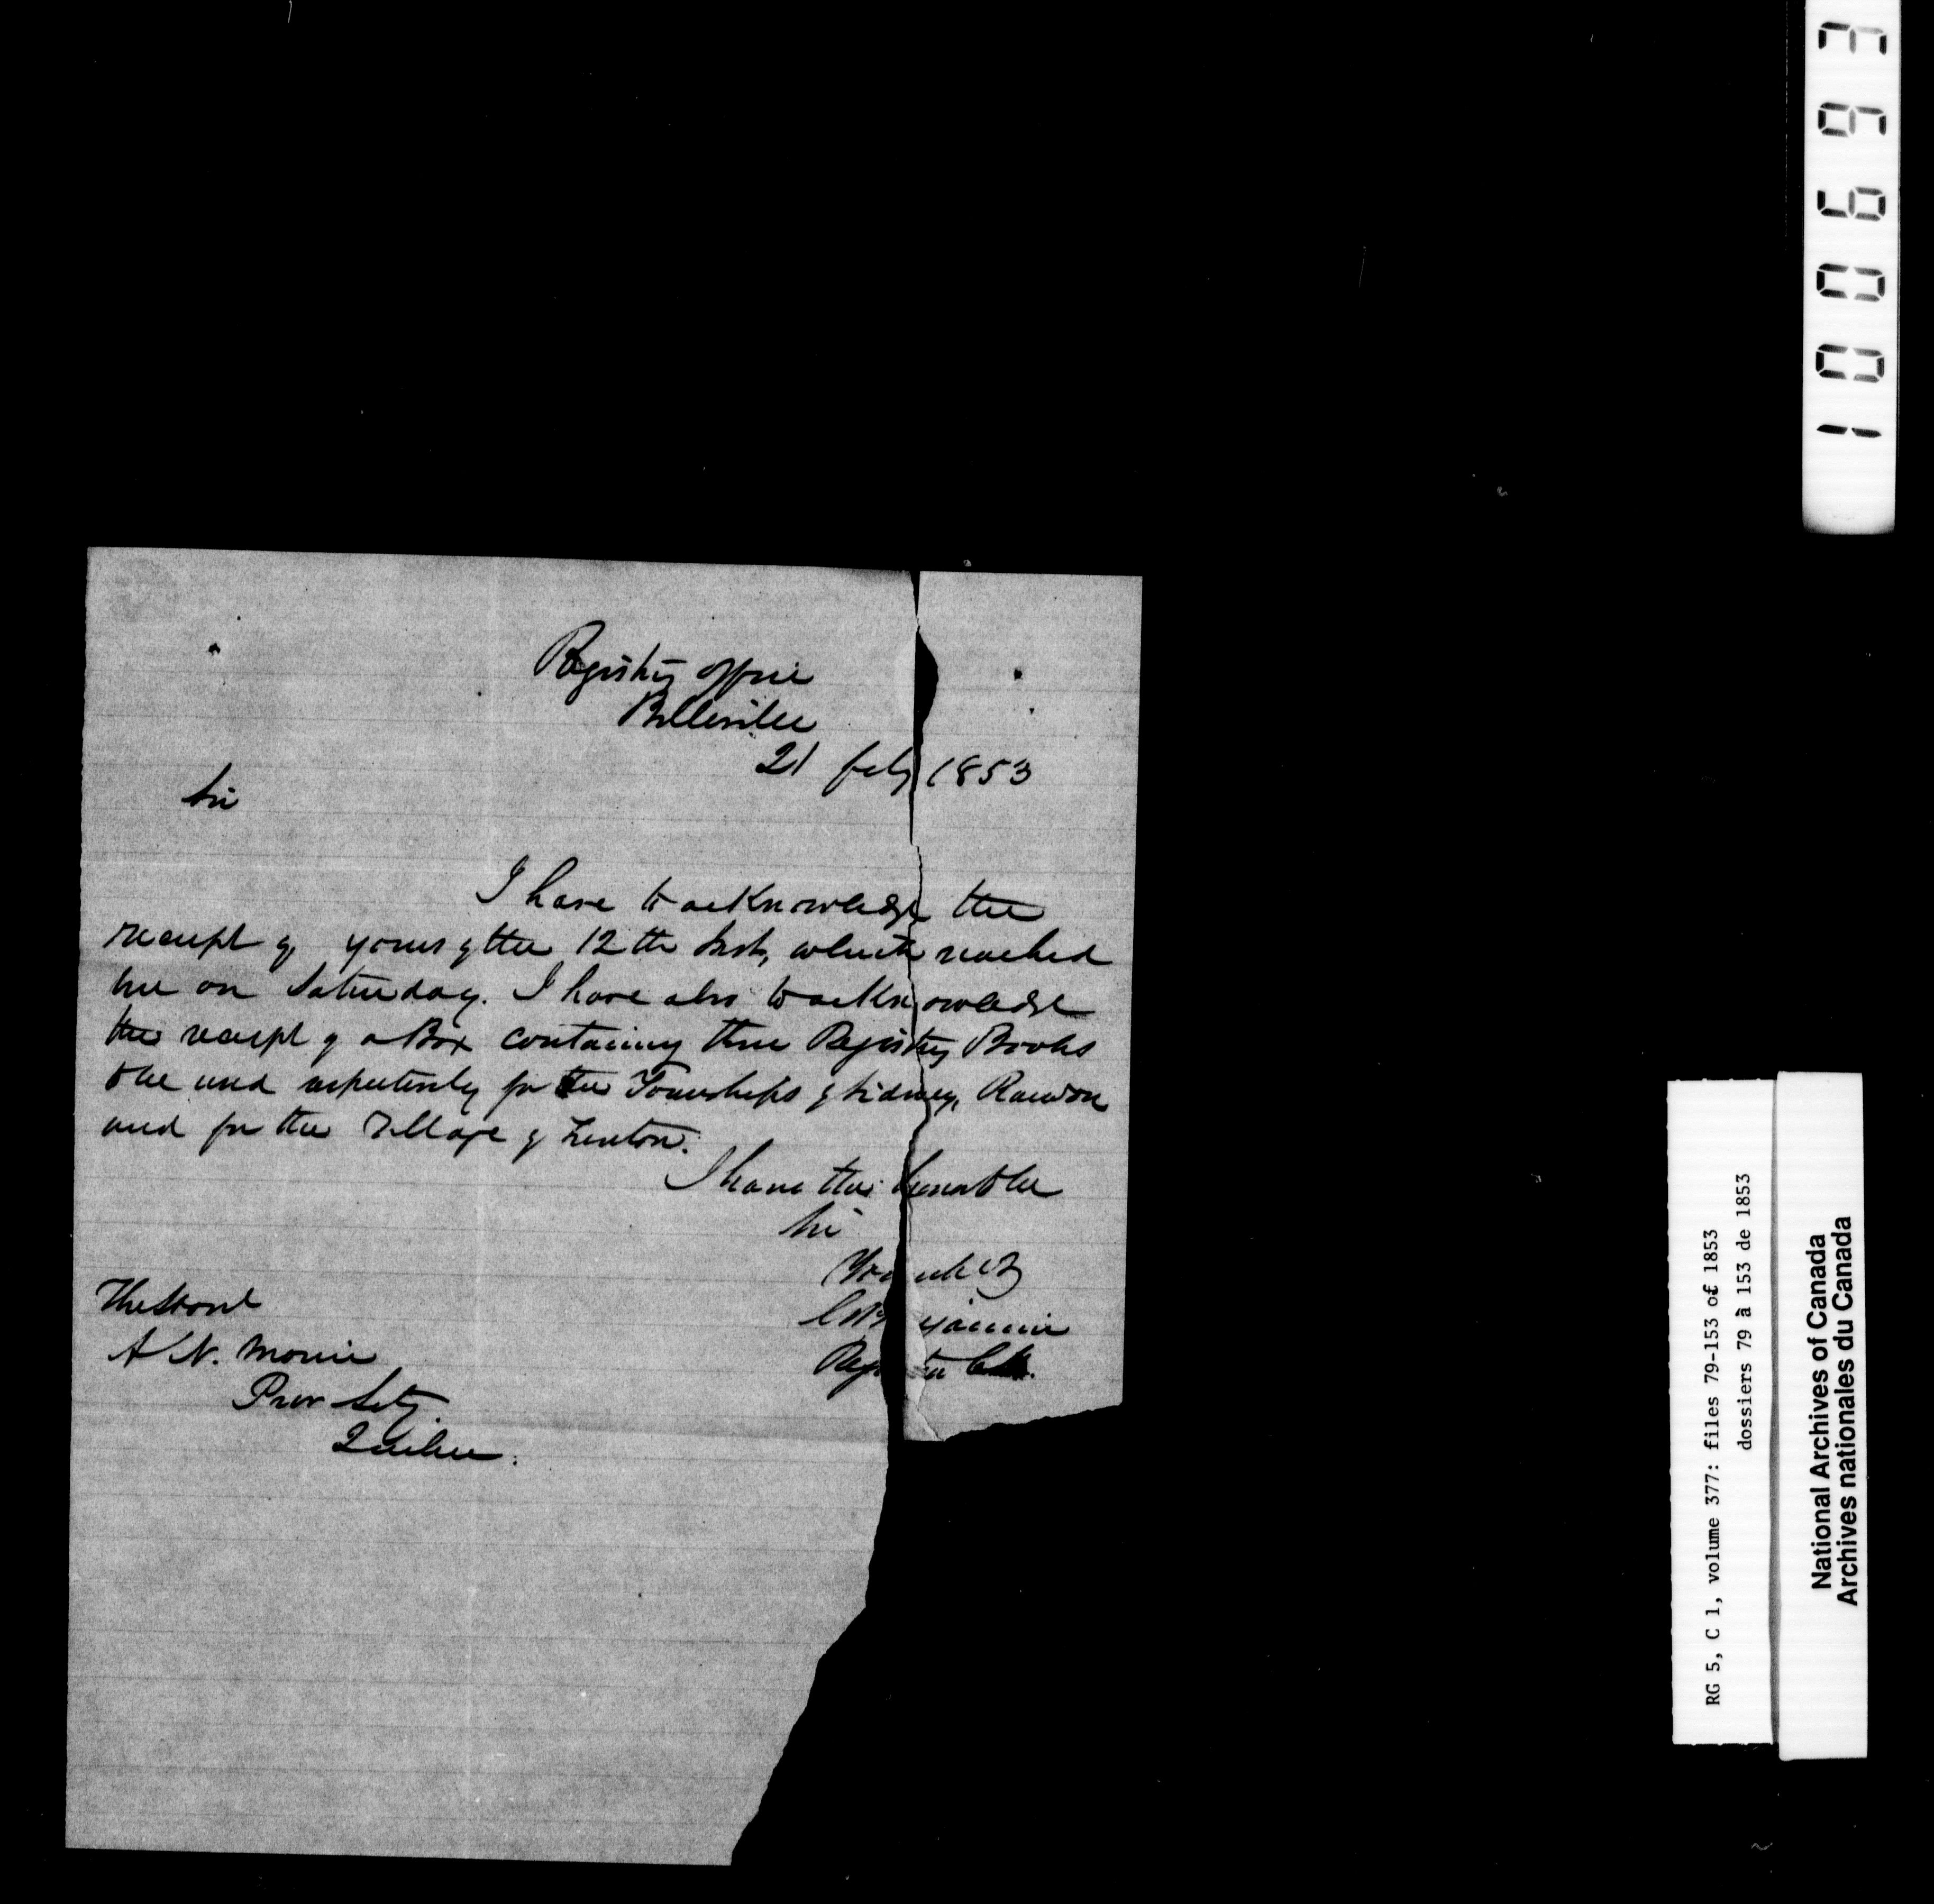 Registry Office
Belleville
21 feby 1853
Sir
I have to acknowledge the
receipt of yours of the 12th Inst, which reached
me on Saturday. I have also to acknowledge
the receipt of a Box containing three Registry Books
to be used respectively for the Townships of Sidney, Rawdon
and for the Village of Trenton.
I have the honor to be
Sir
G Benjamin
Register
The Honl
A N. Morin
Prov Secy
Quebec.
RG 5, C 1, volume 377: files 79-153 of 1853
dossiers 79 à 153 de 1853
National Archives of Canada
Archives nationales du Canada